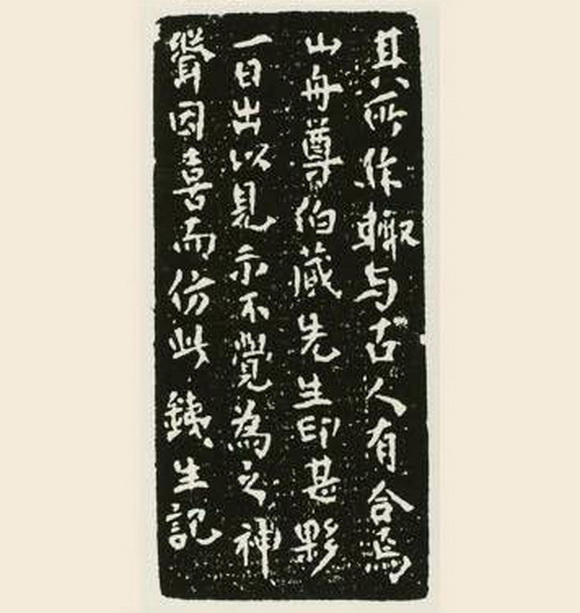 其所作輙与古人有合焉
山舟尊伯藏先生印甚夥
一日出以見示不覺為之神
聳因喜而仿此銕生記